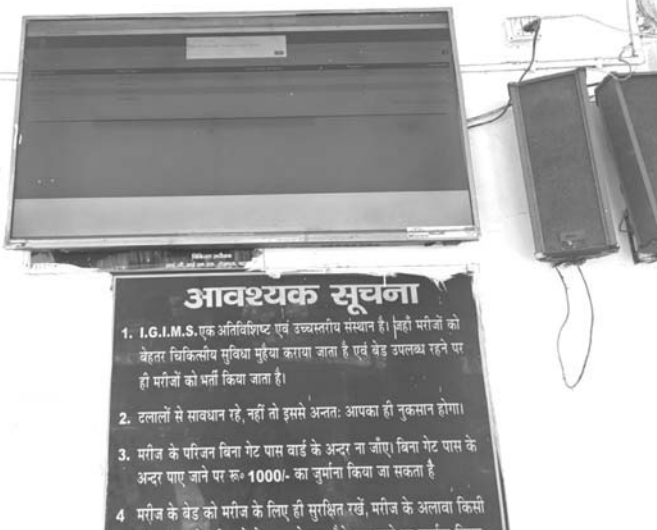 आवश्यक सूचना
1. I.G.I.M.S. एक अतिविशिष्ट एवं उच्चस्तरीय संस्थान है। जहाँ मरीजों को
बेहतर चिकित्सीय सुविधा मुहैया कराया जाता है एवं बेड उपलब्ध रहने पर
ही मरीजों को भर्ती किया जाता है।
2. टलालों से सावधान रहे, नहीं तो इससे अन्ततः आपका ही नुकसान होगा।
3. मरीज के परिजन बिना गेट पास वार्ड के अन्दर ना जाँए। बिना गेट पास के
अन्दर पाए जाने पर रू० 1000/- का जुर्माना किया जा सकता है
4 मरीज के बेड को मरीज के लिए ही सुरक्षित रखें, मरीज के अलावा किसी